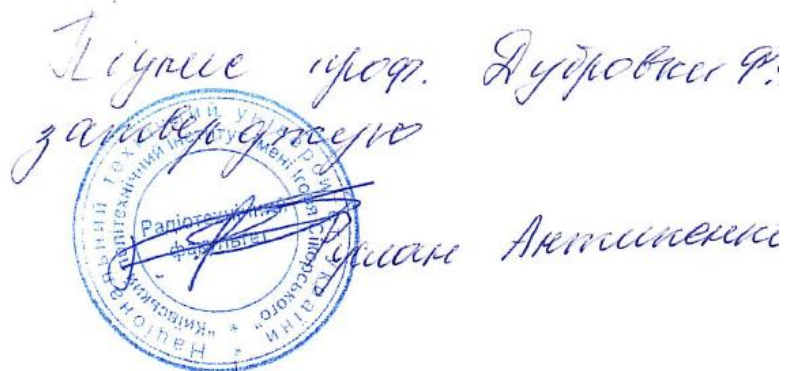 Підпис проф. Дубровки Ф.
затверджую
Національний технічний університет України *
"Київський політехнічний інститут імені Ігоря Сікорського" *
Радіотехнічний
факультет
Руслан Антипенко